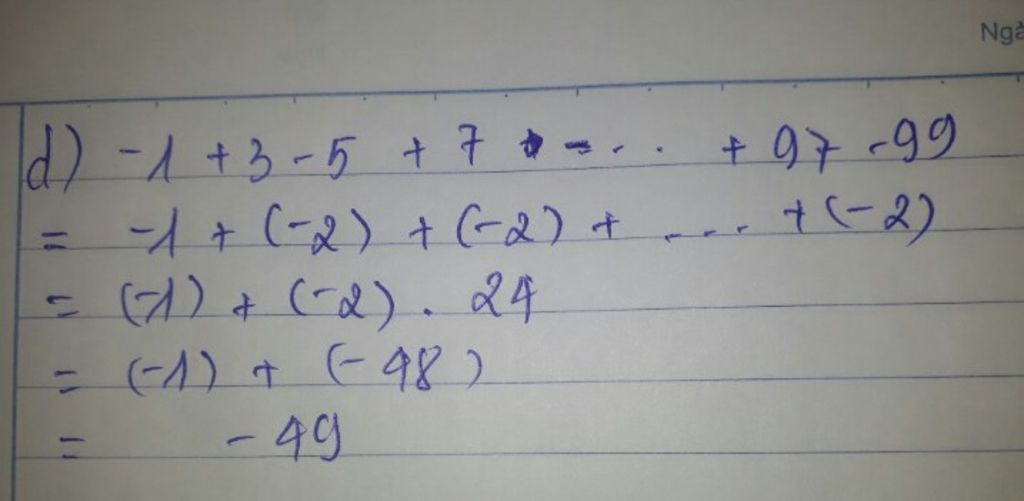 Ngà
d) -1 + 3 - 5 + 7 - ... + 97 - 99
= -1 + (-2) + (-2) + .... + (-2)
= (-1) + (-2) . 24
= (-1) + (-48)
= -49